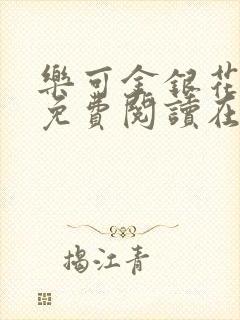 樂可金銀花
免費閱讀在
揭江青